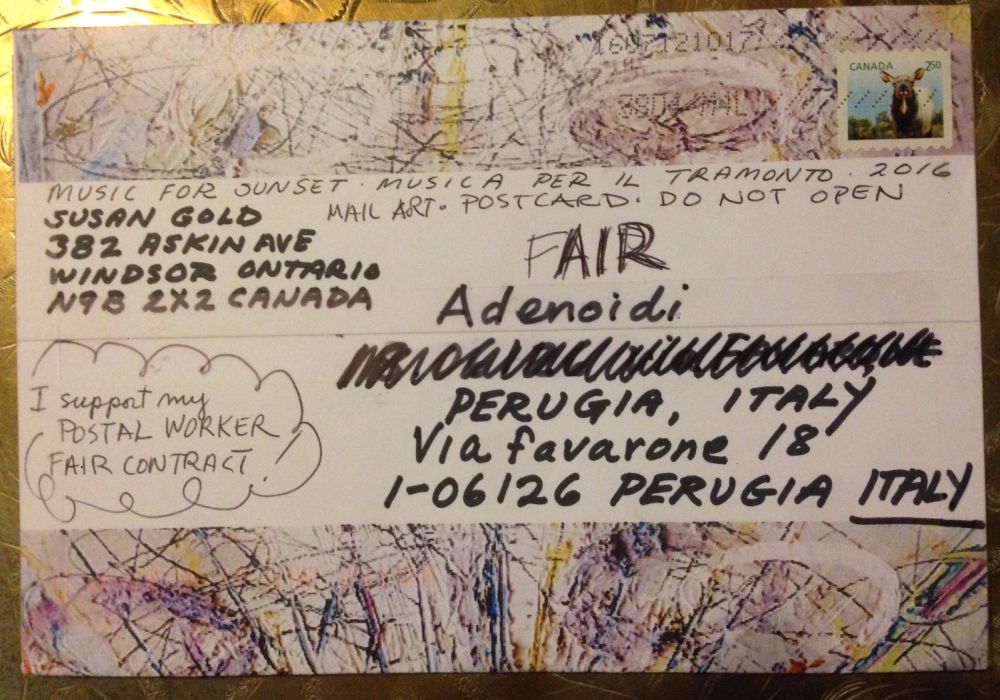 1607121017
CANADA 250
MUSIC FOR SUNSET · MUSICA PER IL TRAMONTO · 2016
MAIL ART · POSTCARD · DO NOT OPEN
SUSAN GOLD
382 ASKIN AVE
WINDSOR ONTARIO
N9B 2X2 CANADA
FAIR
Adenoidi
PERUGIA, ITALY
Via favarone 18
I-06126 PERUGIA ITALY
I support my
POSTAL WORKER
FAIR CONTRACT!